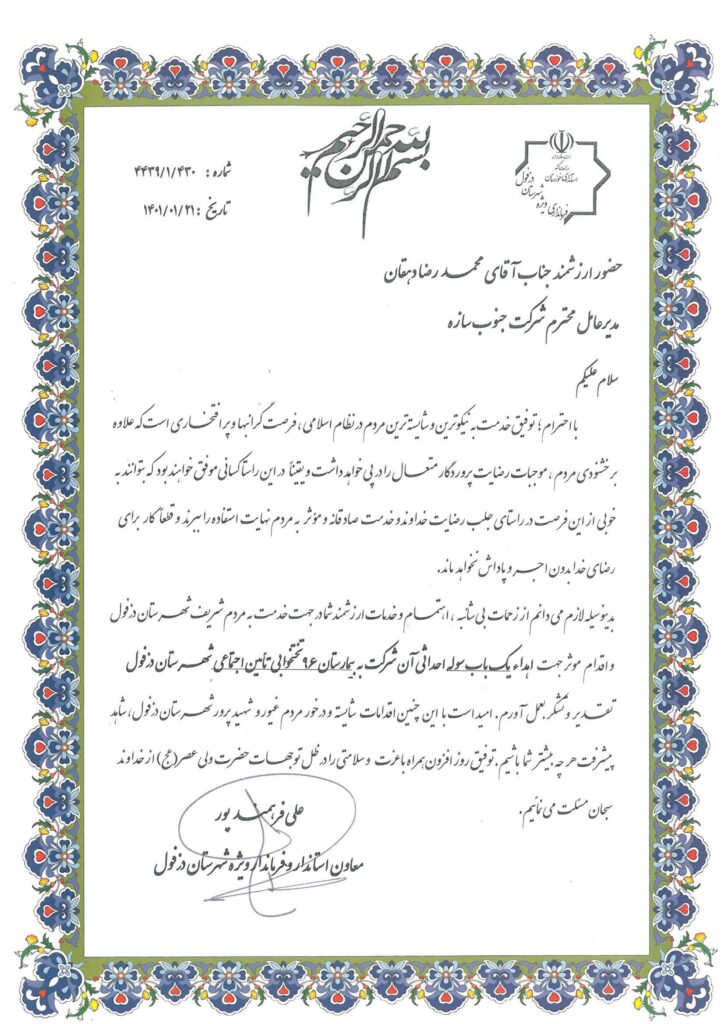 بسم الله الرحمن الرحیم
استانداری خوزستان
فرمانداری ویژه شهرستان دزفول
شماره : ۴۴۳۹/۱/۴۳۰
تاریخ : ۱۴۰۱/۰۱/۲۱
حضور ارزشمند جناب آقای محمد رضا دهقان
مدیر عامل محترم شرکت جنوب سازه
سلام علیکم
با احترام؛ توفیق خدمت به نیکوترین و شایسته ترین مردم در نظام اسلامی، فرصت گرانبها و پر افتخاری است که علاوه
بر خشنودی مردم، موجبات رضایت پروردگار متعال را در پی خواهد داشت و یقیناً در این راستا کسانی موفق خواهند بود که بتوانند به
خوبی از این فرصت در راستای جلب رضایت خداوند و خدمت صادقانه و مؤثر به مردم نهایت استفاده را ببرند و قطعاً کار برای
رضای خدا بدون اجر و پاداش نخواهد ماند.
بدینوسیله لازم می دانم از زحمات بی شائبه، اهتمام و خدمات ارزشمند شما در جهت خدمت به مردم شریف شهرستان دزفول
و اقدام موثر جهت اهداء یک باب سوله احداثی آن شرکت به بیمارستان ۹۶ تختخوابی تأمین اجتماعی شهرستان دزفول
تقدیر و تشکر بعمل آورم. امید است با این چنین اقدامات شایسته و در خور مردم غیور و شهید پرور شهرستان دزفول، شاهد
پیشرفت هر چه بیشتر شما باشیم. توفیق روز افزون همراه با عزت و سلامتی را در ظل توجهات حضرت ولی عصر (عج) از خداوند
سبحان مسئلت می نمائیم.
علی فرهمند پور
معاون استاندار و فرماندار ویژه شهرستان دزفول